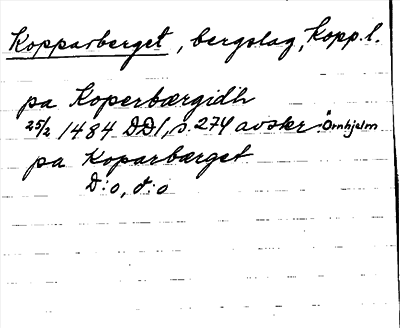 Kopparberget, bergslag, Kopp.l.
pa Koperbærgidh
25/2 1484 DD1, s. 274 avskr. Örnhjelm
pa Koparbærget
D:o, d:o